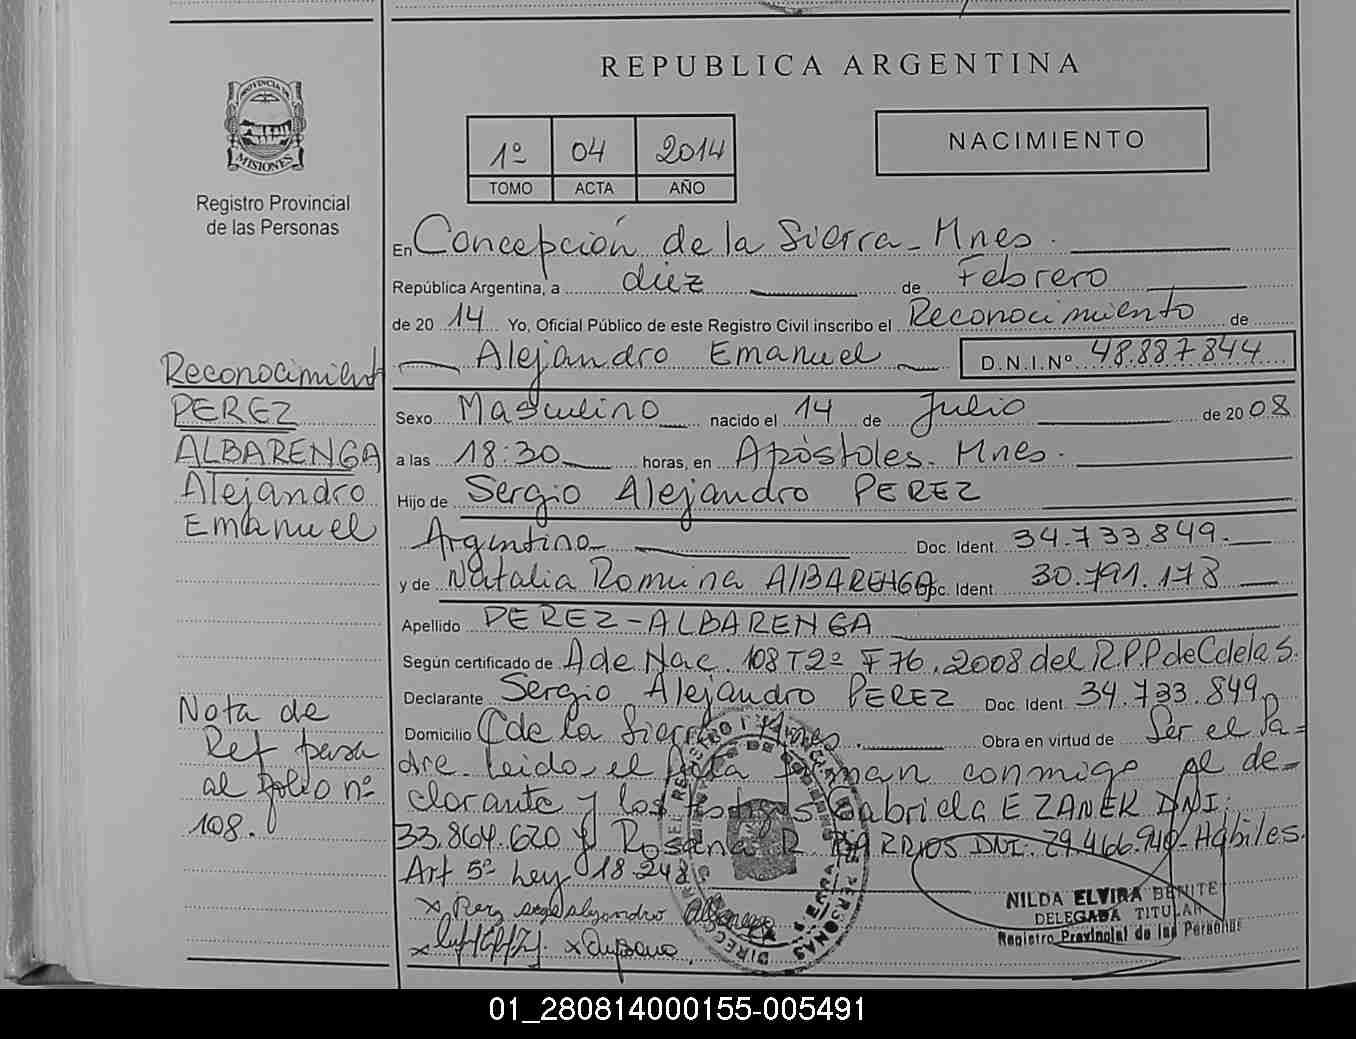 REPUBLICA ARGENTINA
PROVINCIA DE
MISIONES
Registro Provincial
de las Personas
1º 04 2014
TOMO ACTA AÑO
NACIMIENTO
En Concepción de la Sierra - Mnes.
República Argentina, a diez de Febrero
de 20 14 Yo, Oficial Público de este Registro Civil inscribo el Reconocimiento de
Alejandro Emanuel D.N.I.Nº 48.887844
Sexo Masculino nacido el 14 de Julio de 20 08
a las 18:30 horas, en Apóstoles - Mnes.
Hijo de Sergio Alejandro PEREZ
Argentino Doc. Ident. 34.733.849.
y de Natalia Romina AlBARENGA Doc. Ident. 30.791.178
Apellido PEREZ-ALBARENGA
Según certificado de A de Nac. 108 T2º F76.2008 del R.P.P de C de la S.
Declarante Sergio Alejandro PEREZ Doc. Ident. 34.733.849
Domicilio C de la Sierra Mnes. Obra en virtud de Ser el Pa=
dre. Leido el Acta firman conmigo el de-
clarante y los testigos Gabriela E ZANEK DNI:
33.864.620 y Rosana R. BARRIOS DNI: 29.466.940-Hábiles.
Art 5º Ley 18.248
x Perez sergio alejandro
NILDA ELVIRA BENITE
DELEGADA TITULAR
Registro Provincial de las Personas
Reconocimient
PEREZ
ALBARENGA
Alejandro
Emanuel
Nota de
Ref pasa
al folio nº
108.
01_280814000155-005491